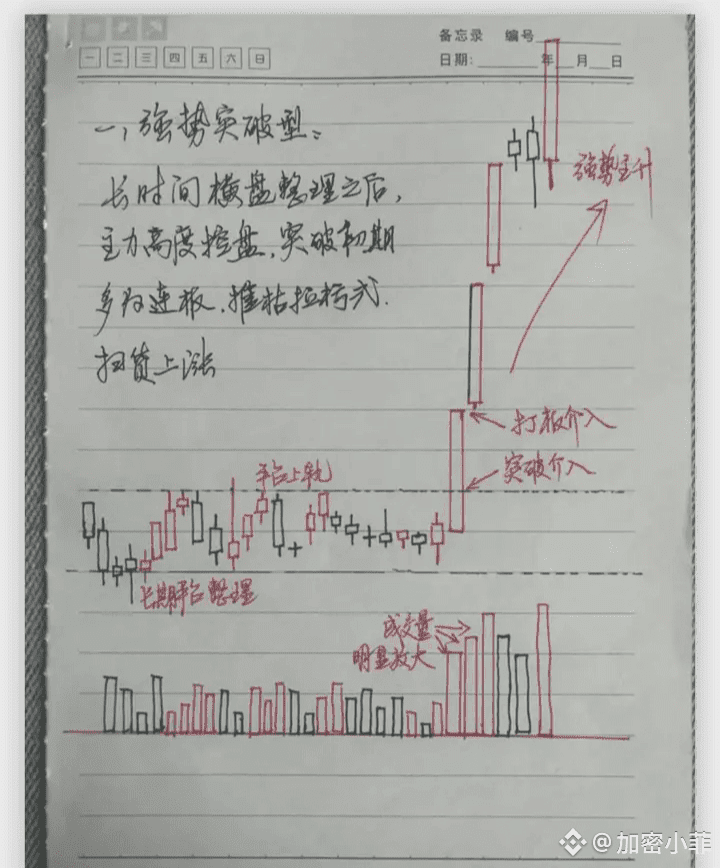 备忘录 编号
一 二 三 四 五 六 日
日期: 年 月 日
一、强势突破型:
长时间横盘整理之后,
主力高度控盘,突破初期
多为连板,摧枯拉朽式
扫货上涨
强势主升
打板介入
突破介入
平台上轨
长期平台整理
成交量
明显放大
@加密小菲